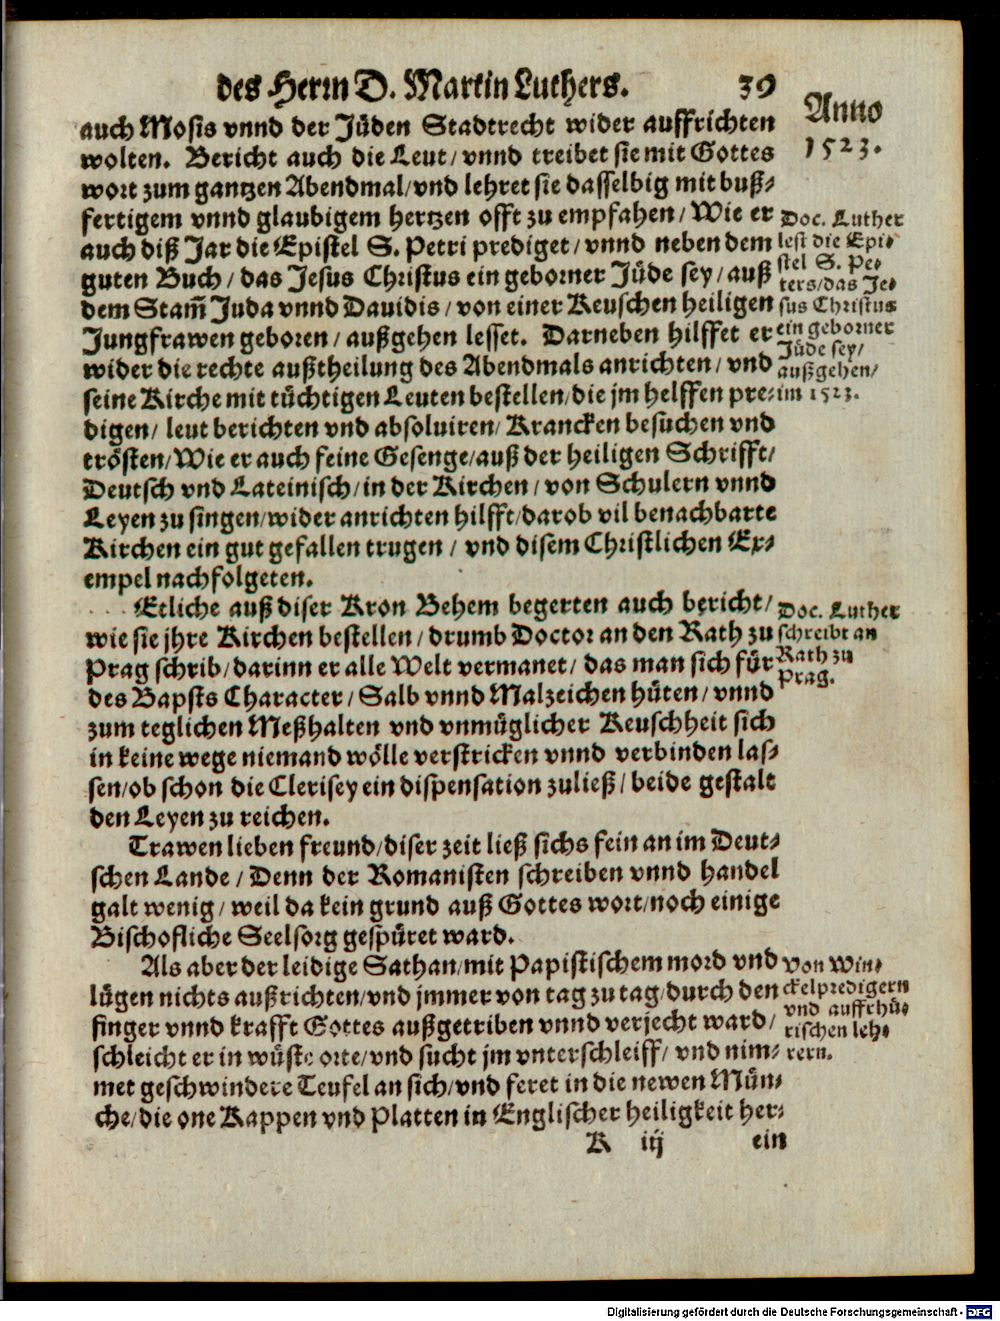 des Herrn D. Martin Luthers. 39
Anno
1523.
auch Mosis vnnd der Jüden Stadtrecht wider auffrichten
wolten. Bericht auch die Leut / vnnd treibet sie mit Gottes
wort zum gantzen Abendmal / vnd lehret sie dasselbig mit buß-
fertigem vnnd glaubigem hertzen offt zu empfahen / Wie er
auch diß Jar die Epistel S. Petri prediget / vnnd neben dem
guten Buch / das Jesus Christus ein geborner Jüde sey / auß
dem Stam̃ Juda vnnd Dauidis / von einer Keuschen heiligen
Jungfrawen geboren / außgehen lesset. Darneben hilffet er
wider die rechte außtheilung des Abendmals anrichten / vnd
seine Kirche mit tüchtigen Leuten bestellen / die jm helffen pre-
digen / leut berichten vnd absoluiren / Krancken besuchen vnd
trösten / Wie er auch feine Gesenge / auß der heiligen Schrifft /
Deutsch vnd Lateinisch / in der Kirchen / von Schulern vnnd
Leyen zu singen / wider anrichten hilfft / darob vil benachbarte
Kirchen ein gut gefallen trugen / vnd disem Christlichen Ex-
empel nachfolgeten.
Doc. Luther
lest die Epi-
stel S. Pe-
ters / das Je-
sus Christus
ein geborner
Jüde sey /
außgehen /
im 1523.
Etliche auß diser Kron Behem begerten auch bericht /
wie sie jhre Kirchen bestellen / drumb Doctor an den Rath zu
Prag schrib / darinn er alle Welt vermanet / das man sich für
des Bapsts Character / Salb vnnd Malzeichen hüten / vnnd
zum teglichen Meßhalten vnd vnmüglicher Keuschheit sich
in keine wege niemand wölle verstricken vnnd verbinden las-
sen / ob schon die Clerisey ein dispensation zuließ / beide gestalt
den Leyen zu reichen.
Doc. Luther
schreibt an
Rath zu
Prag.
Trawen lieben freund / diser zeit ließ sichs fein an im Deut-
schen Lande / Denn der Romanisten schreiben vnnd handel
galt wenig / weil da kein grund auß Gottes wort / noch einige
Bischofliche Seelsorg gespüret ward.
Als aber der leidige Sathan / mit Papistischem mord vnd
lügen nichts außrichten / vnd jmmer von tag zu tag / durch den
finger vnnd krafft Gottes außgetriben vnnd verjecht ward /
schleicht er in wüste orte / vnd sucht jm vnterschleiff / vnd nim-
met geschwindere Teufel an sich / vnd feret in die newen Mün-
che / die one Kappen vnd Platten in Englischer heiligkeit her-
von Win-
ckelpredigern
vnd auffrhü-
rischen leh-
rern.
K iij ein
Digitalisierung gefördert durch die Deutsche Forschungsgemeinschaft - DFG